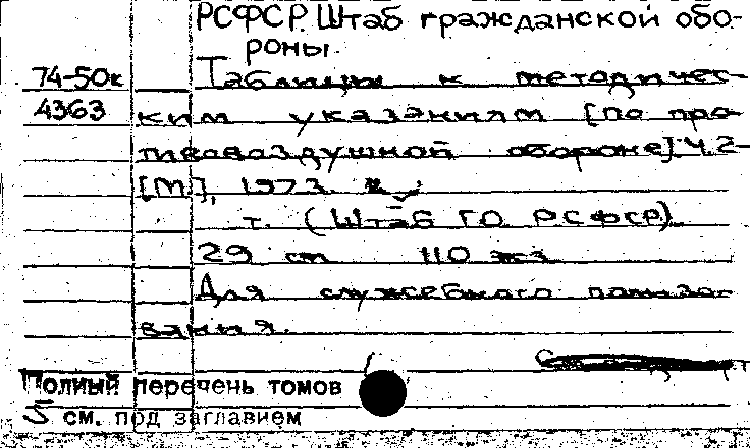 РСФСР. Штаб гражданской обо-
роны.
74-50к Таблицы к методичес-
4363 ким указаниям [по про-
тивовоздушной обороне]. Ч. 2-
[М.], 1973.
т. (Штаб ГО РСФСР).
29 см 110 экз.
Для служебного пользо-
вания.
Полный перечень томов
см. под заглавием